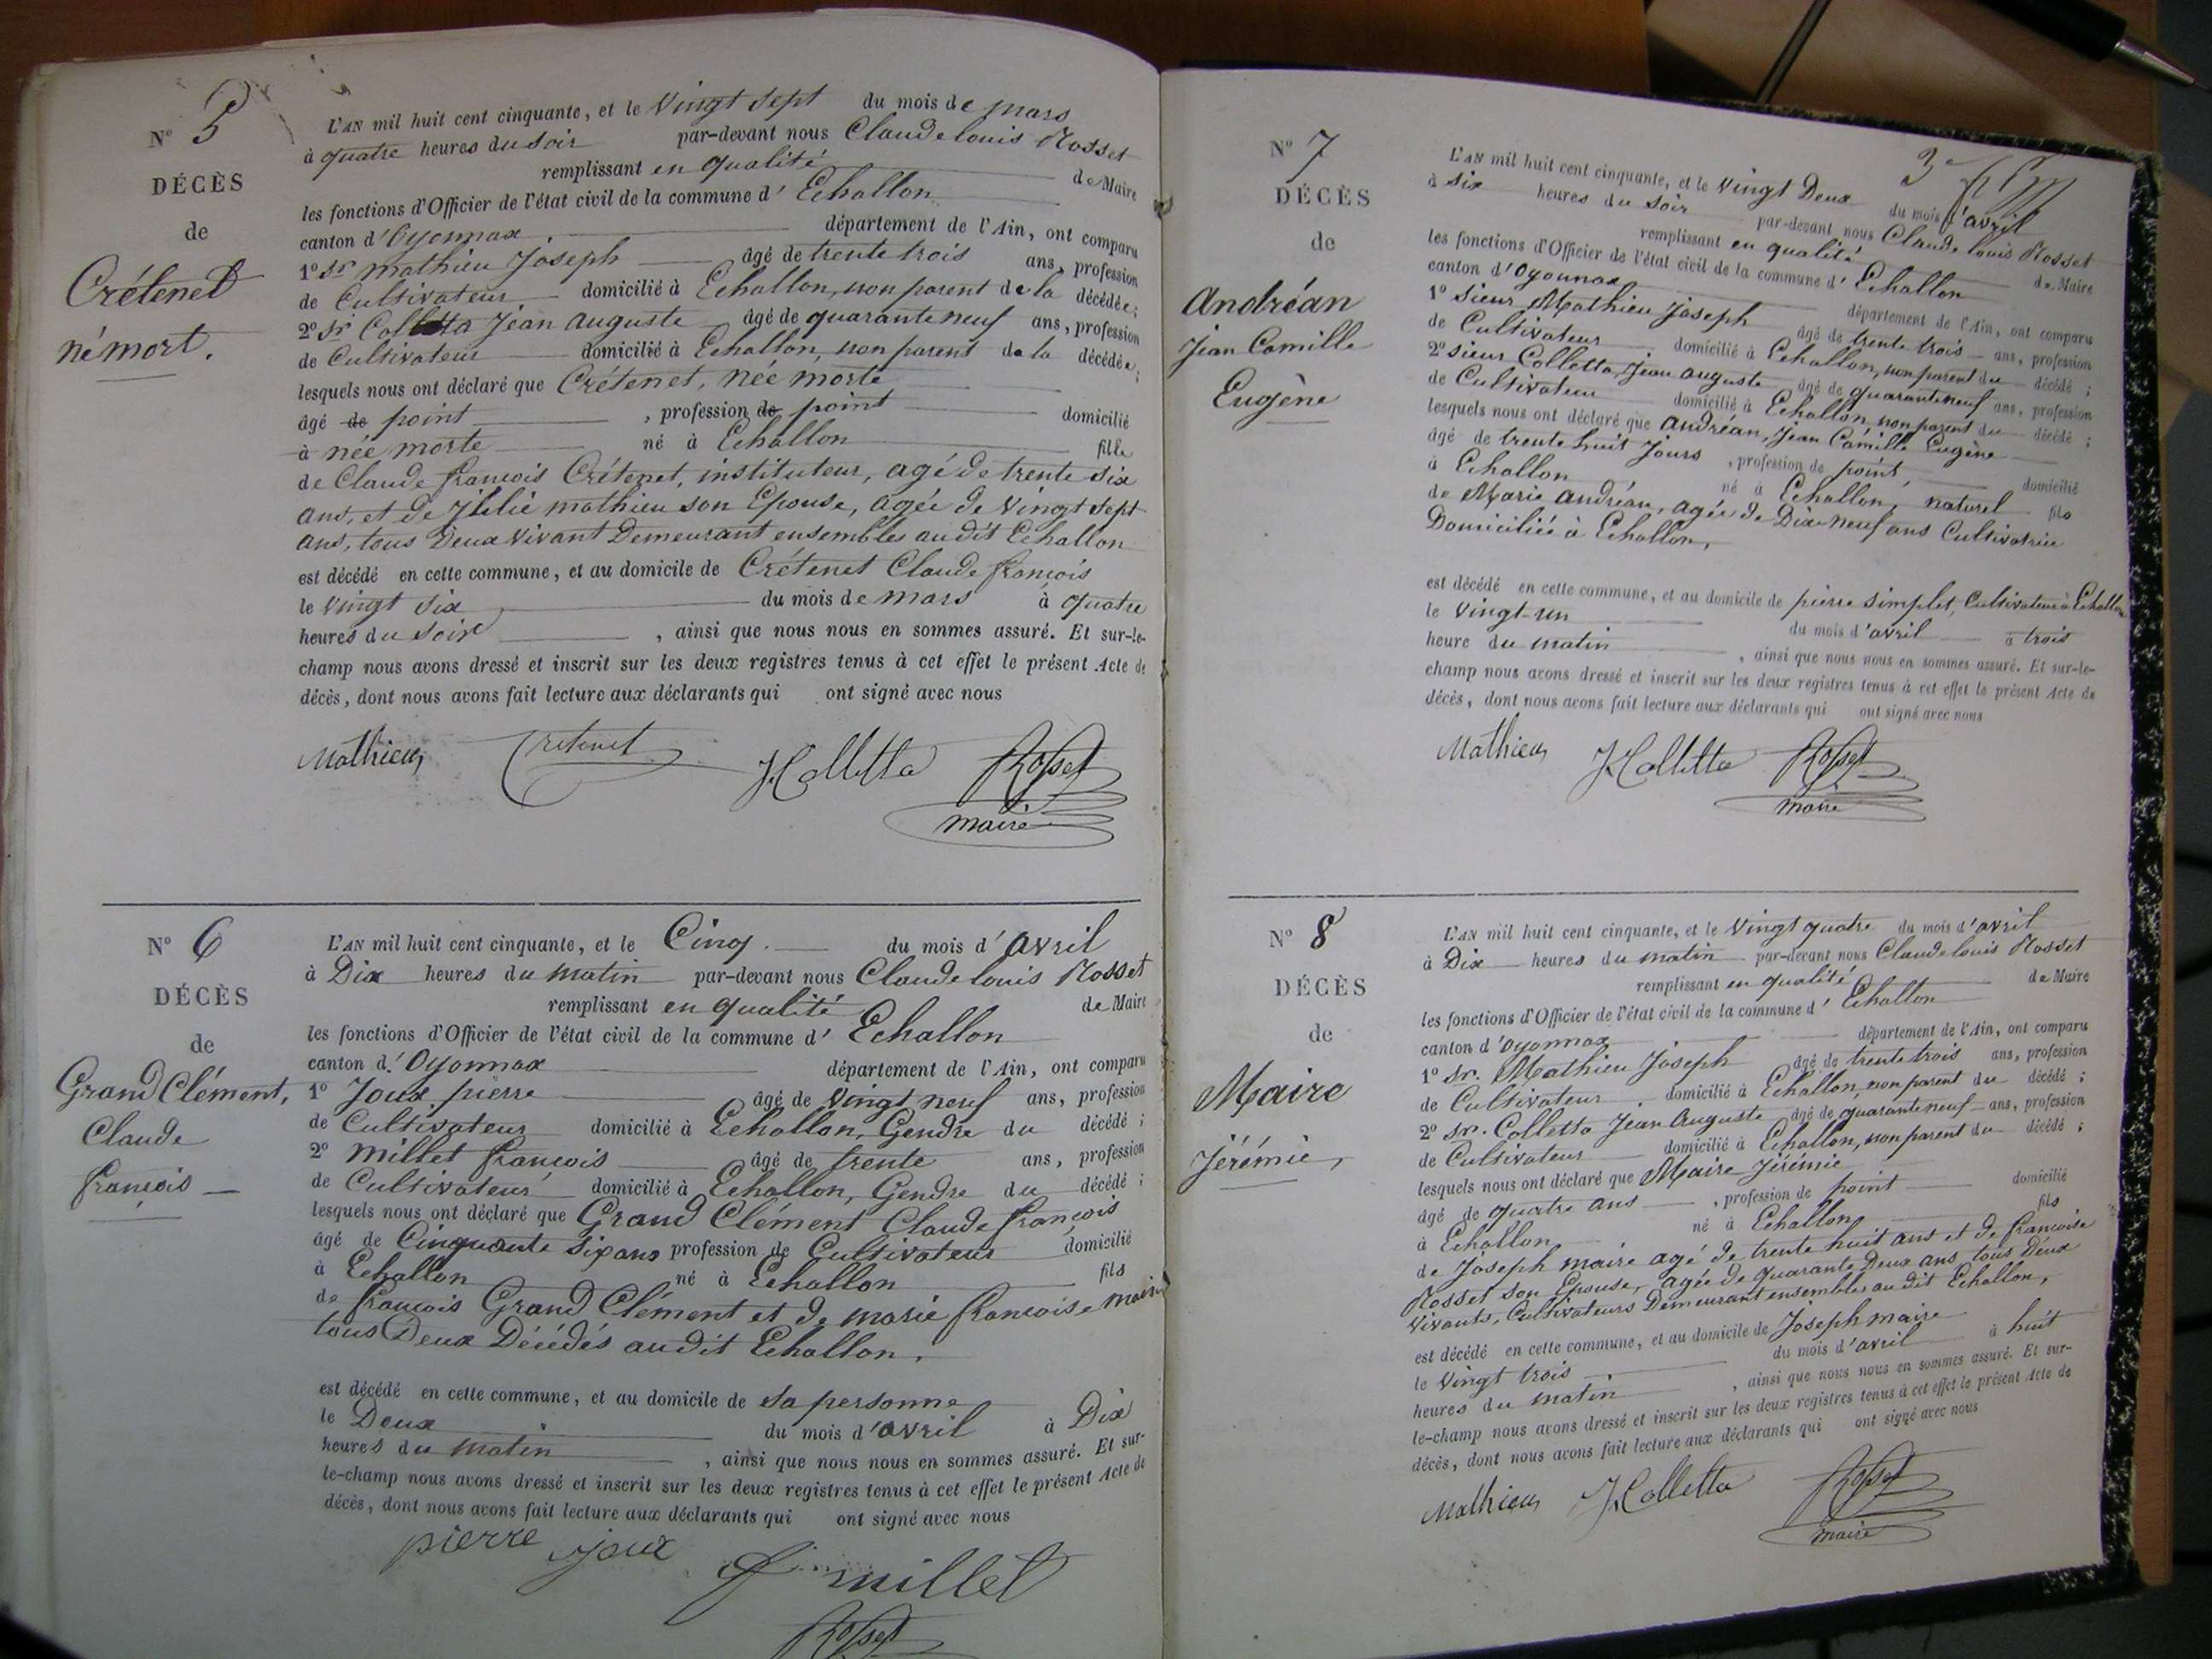 N° 5
DÉCÈS
de
Crétenet
né mort.
L'AN mil huit cent cinquante, et le Vingt sept du mois de mars
à quatre heures du soir par-devant nous Claude louis Rosset
remplissant en qualité de Maire
les fonctions d'Officier de l'état civil de la commune d' Echallon
canton d'Oyonnax département de l'Ain, ont comparu
1° Sr mathieu Joseph âgé de trente trois ans, profession
de Cultivateur domicilié à Echallon, non parent de la décédée;
2° Sr Colletta Jean Auguste âgé de quarante neuf ans, profession
de Cultivateur domicilié à Echallon, non parent de la décédée;
lesquels nous ont déclaré que Crétenet, née morte
âgé de point , profession de point domicilié
à née morte né à Echallon fille
de Claude françois Crétenet, instituteur, agé de trente six
ans, et de mathieu son Epouse, agée de Vingt sept
ans, tous Deux Vivant Demeurant ensembles au dit Echallon
est décédé en cette commune, et au domicile de Crétenet Claude françois
le Vingt Six du mois de mars à quatre
heures du soir , ainsi que nous nous en sommes assuré. Et sur-le-
champ nous avons dressé et inscrit sur les deux registres tenus à cet effet le présent Acte de
décès, dont nous avons fait lecture aux déclarants qui ont signé avec nous
Mathieu Cretenet J Colletta Rosset
maire
N° 6
DÉCÈS
de
Grand Clément,
Claude
françois
L'AN mil huit cent cinquante, et le Cinq du mois d' avril
à Dix heures du matin par-devant nous Claude louis Rosset
remplissant en qualité de Maire
les fonctions d'Officier de l'état civil de la commune d' Echallon
canton d'Oyonnax département de l'Ain, ont comparu
1° Joux pierre âgé de vingt neuf ans, profession
de Cultivateur domicilié à Echallon, Gendre du décédé ;
2° Millet françois âgé de trente ans, profession
de Cultivateur domicilié à Echallon, Gendre du décédé ;
lesquels nous ont déclaré que Grand Clément Claude françois
âgé de Cinquante six ans profession de Cultivateur domicilié
à Echallon né à Echallon fils
de françois Grand Clément et de marie françoise maire
tous Deux Décédés au dit Echallon.
est décédé en cette commune, et au domicile de Sa personne
le Deux du mois d'avril à Dix
heures du matin , ainsi que nous nous en sommes assuré. Et sur-
le-champ nous avons dressé et inscrit sur les deux registres tenus à cet effet le présent Acte de
décès, dont nous avons fait lecture aux déclarants qui ont signé avec nous
pierre joux f millet
Rosset
N° 7
DÉCÈS
de
Andréan
Jean Camille
Eugène
3e
L'AN mil huit cent cinquante, et le Vingt Deux du mois d'avril
à six heures du soir par-devant nous Claude louis Rosset
remplissant en qualité de Maire
les fonctions d'Officier de l'état civil de la commune d' Echallon
canton d'Oyonnax département de l'Ain, ont comparu
1° Sieur Mathieu Joseph âgé de trente trois ans, profession
de Cultivateur domicilié à Echallon, non parent du décédé ;
2° sieur Colletta, Jean auguste âgé de quarante neuf ans, profession
de Cultivateur domicilié à Echallon non parent du décédé ;
lesquels nous ont déclaré que Andréan, Jean Camille Eugène
âgé de trente huit Jours , profession de point, domicilié
à Echallon né à Echallon, naturel fils
de Marie Andréan, agée de Dix neuf ans Cultivatrice
Domiciliée à Echallon,
est décédé en cette commune, et au domicile de pierre simplet, Cultivateur à Echallon
le Vingt-un du mois d'avril à trois
heure du matin , ainsi que nous nous en sommes assuré. Et sur-le-
champ nous avons dressé et inscrit sur les deux registres tenus à cet effet le présent Acte de
décès, dont nous avons fait lecture aux déclarants qui ont signé avec nous
Mathieu J Colletta Rosset
maire
N° 8
DÉCÈS
de
Maire
Jérémie,
L'AN mil huit cent cinquante, et le Vingt quatre du mois d'avril
à Dix heures du matin par-devant nous Claude louis Rosset
remplissant en qualité de Maire
les fonctions d'Officier de l'état civil de la commune d' Echallon
canton d'Oyonnax département de l'Ain, ont comparu
1° Sr. Mathieu Joseph âgé de trente trois ans, profession
de Cultivateur domicilié à Echallon, non parent du décédé ;
2° Sr. Colletta Jean Auguste âgé de quarante neuf ans, profession
de Cultivateur domicilié à Echallon, non parent du décédé ;
lesquels nous ont déclaré que Maire Jérémie
âgé de quatre ans , profession de point domicilié
à Echallon né à Echallon fils
de Joseph maire agé de trente huit ans et de françoise
Rosset son Epouse, agée de quarante Deux ans tous Deux
vivants, Cultivateurs Demeurant ensembles au dit Echallon,
est décédé en cette commune, et au domicile de Joseph maire
le Vingt trois du mois d'avril à huit
heures du matin , ainsi que nous nous en sommes assuré. Et sur-
le-champ nous avons dressé et inscrit sur les deux registres tenus à cet effet le présent Acte de
décès, dont nous avons fait lecture aux déclarants qui ont signé avec nous
Mathieu J Colletta Rosset
maire